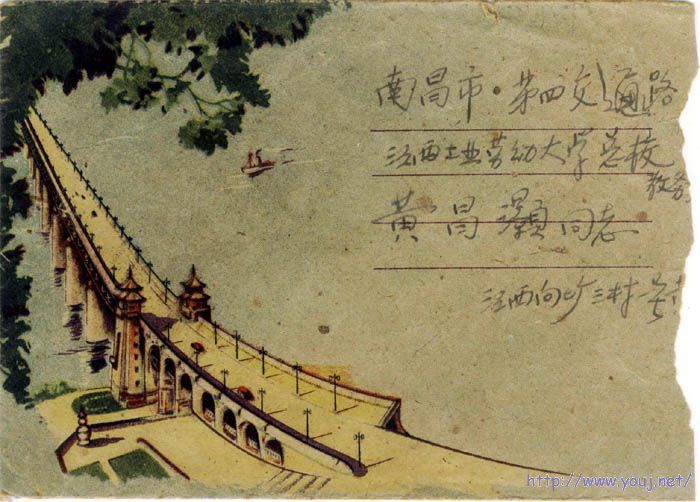 南昌市·第四交通路
江西工业劳动大学总校
教务
黄昌灏同志
江西向　三村一号
http://www.youj.net/